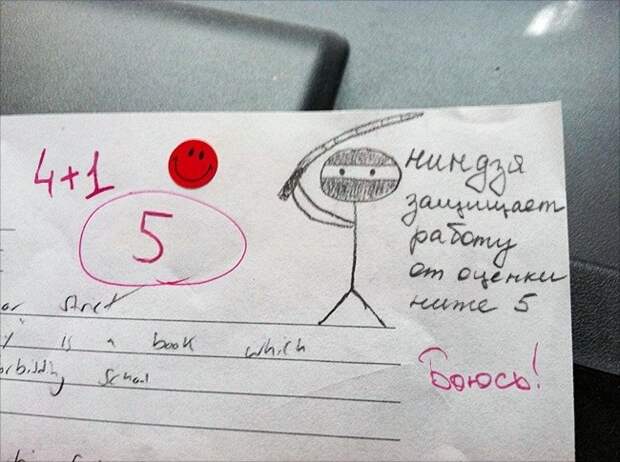 4+1
5
ниндзя
защищает
работу
от оценки
ниже 5
Боюсь!
street
is a book which
School